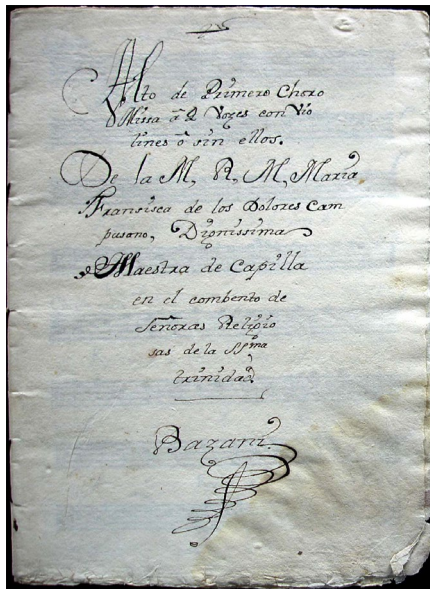 Alto de Primero Choro
Missa â 8 Vozes con Vio
lines ô sin ellos.
De la M, R, M, Maria
Fransisca de los Dolores Cam
pusano, Dignissima
Maestra de Capilla
en el combento de
Señoras Religio
sas de la SSma
trinidad.
Bazani.